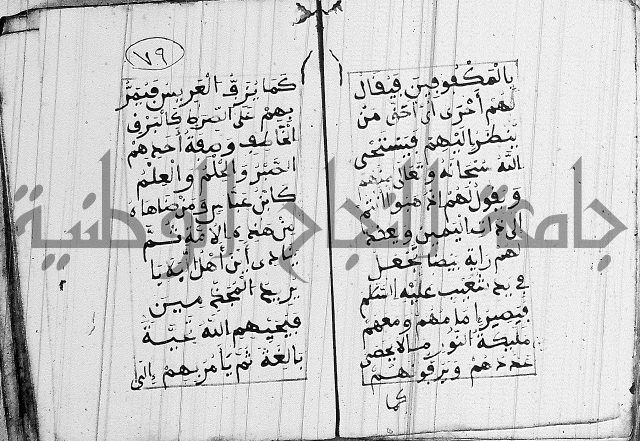 بالمكفوفين فيقال
لهم أحرى أي أحق من
ينظر إليهم فيستحي
الله سبحانه وتعالى منهم
ويقول لهم اذهبوا
إلى ذات اليمين ويعطى
لهم راية بيضا تجعل
في يد شعيب عليه السلم
فيصير أمامهم ومعهم
مليكة النور ما لا يحصي
عددهم ويزفوهم
كما
٧٩
كما يزف العريس فيمر
بهم على الصراط كالبرق
الخاطف وصفة أحدهم
الصبر والحلم والعلم
كابن عباس ومن ضاهاه
من هذه الأمة ثم
ينادى أين أهل
يريد المجذمين
فيحييهم الله تحية
بالغة ثم يأمر بهم إلى
جامعة النجاح الوطنية